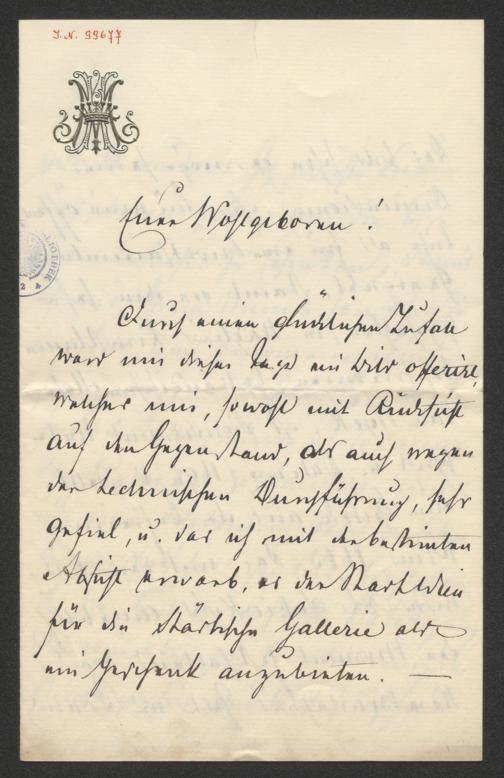 J. N. 99677
LIOTHEK
Euer Wohlgeboren!
Durch einen glücklichen Zufall
ward mir dieser Tage ein Bild offerirt,
welches mir, sowohl mit Rücksicht
auf den Gegenstand, als auch wegen
der technischen Durchführung, sehr
gefiel, u. das ich mit der bestimten
Absicht erwarb, es der Stadt Wien
für die städtische Gallerie als
ein Geschenk anzubieten. —